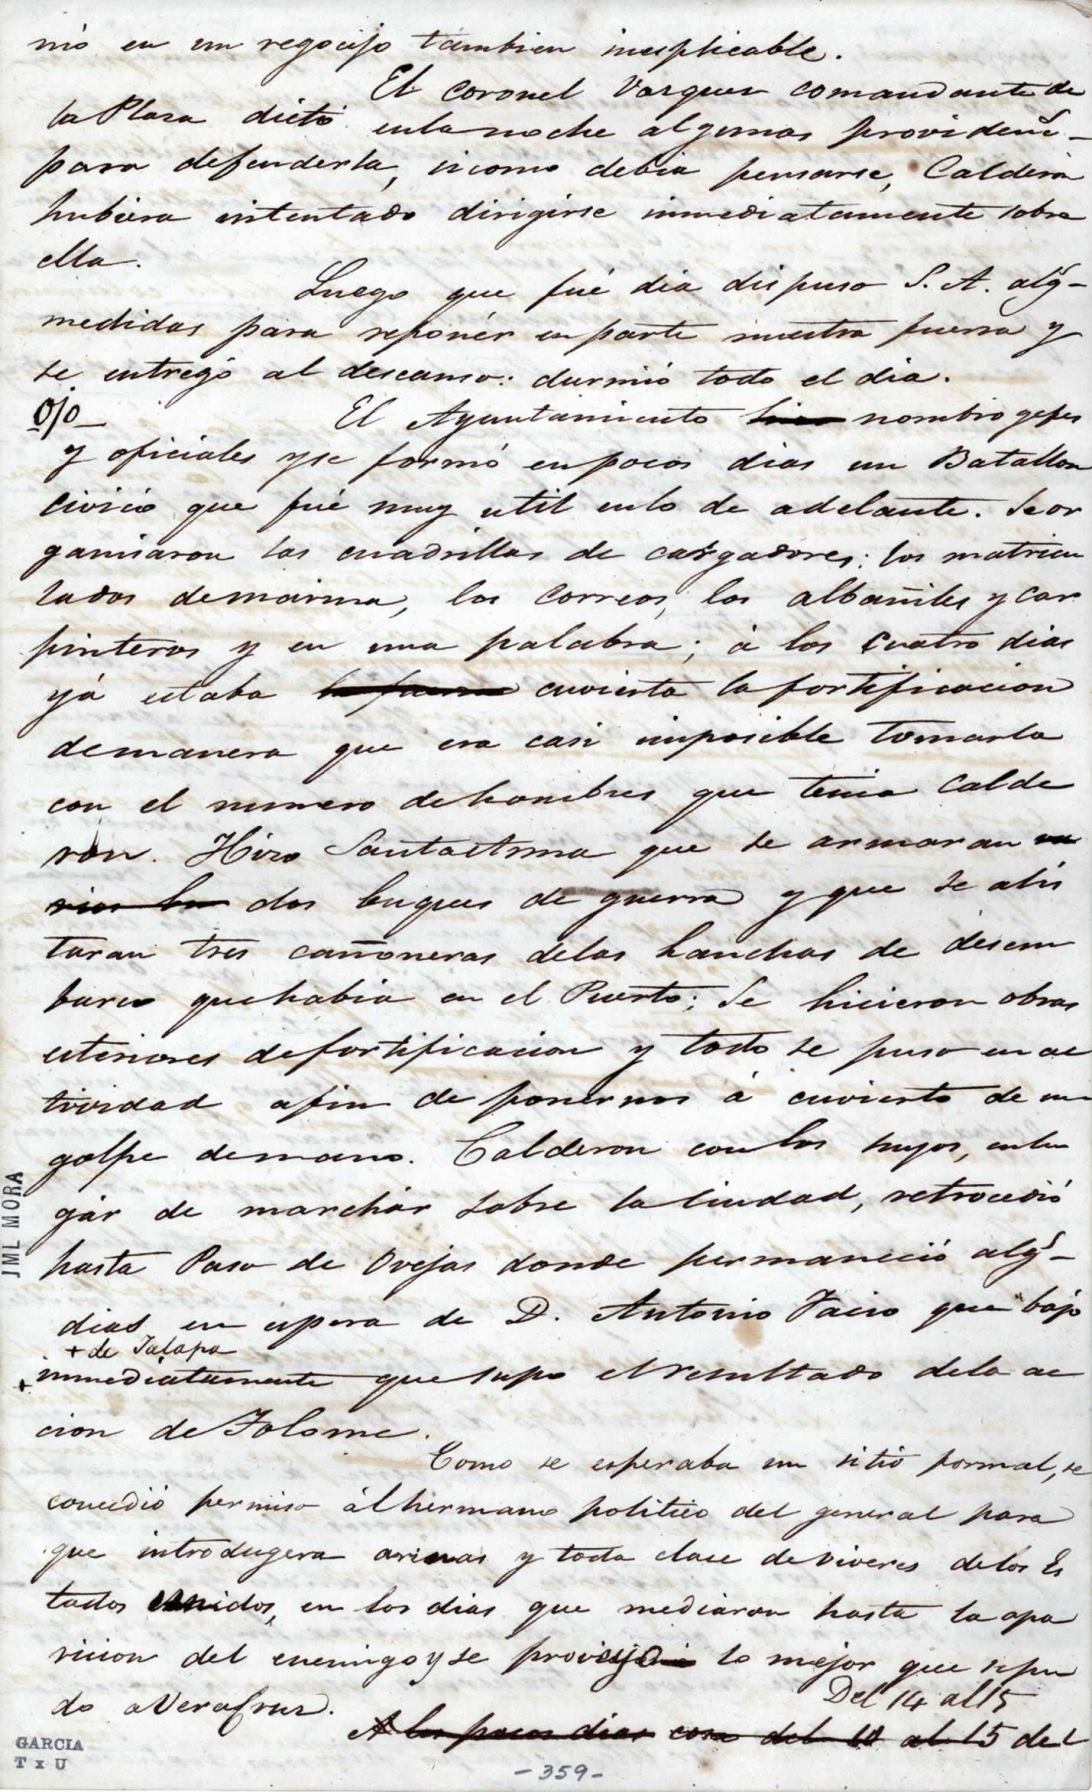 nió en un regocijo tambien inesplicable.
El Coronel Vazquez comandante de
la Plaza dictó en la noche algunas providens.
para defenderla, si como debia pensarse, Calderon
hubiera intentado dirigirse immediatamente sobre
ella.
Luego que fué dia dispuso S. A. algs.
medidas para reponér en parte nuestra fuerza y
se entregó al descanso: durmió todo el dia.
Ojo
El Ayuntamiento hizo nombro gefes
y oficiales y se formó en pocos dias un Batallon
Civico que fué muy util en lo de adelante. Se or
ganizaron las cuadrillas de cargadores: los matricu
lados de marina, los Correos, los albañiles y car
pinteros y en una palabra; á los cuatro dias
yá estaba la fuerza cuvierta la fortificacion
de manera que era casi imposible tomarla
con el numero de hombres que tenia Calde
ron. Hizo Santa Anna que se armaran va
rios bu dos buques de guerra y que se alis
taran tres cañoneras de las lanchas de desem
barco que habia en el Puerto; Se hicieron obras
esteriores de fortificacion y todo se puso en ac
tividad a fin de ponernos á cuvierto de un
golpe de mano. Calderon con los suyos, en lu
gár de marchár sobre la Ciudad, retrocedió
hasta Paso de Ovejas donde permaneció algs.
dias en espera de D. Antonio Facio que bajó
+ de Jalapa
+ immediatamente que supo el resultado de la ac
cion de Tolome.
Como se esperaba un sitio formal, se
concedió permiso ál hermano politico del general para
que introdugera arinas y toda clase de viveres de los Es
tados unidos, en los dias que mediaron hasta la apa
ricion del enemigo y se lo mejor que se pu
do a Veracruz.
Del 14 al 15
A los pocos dias cosa del 10 al 15 del
JML MORA
GARCIA
T x U
-359-